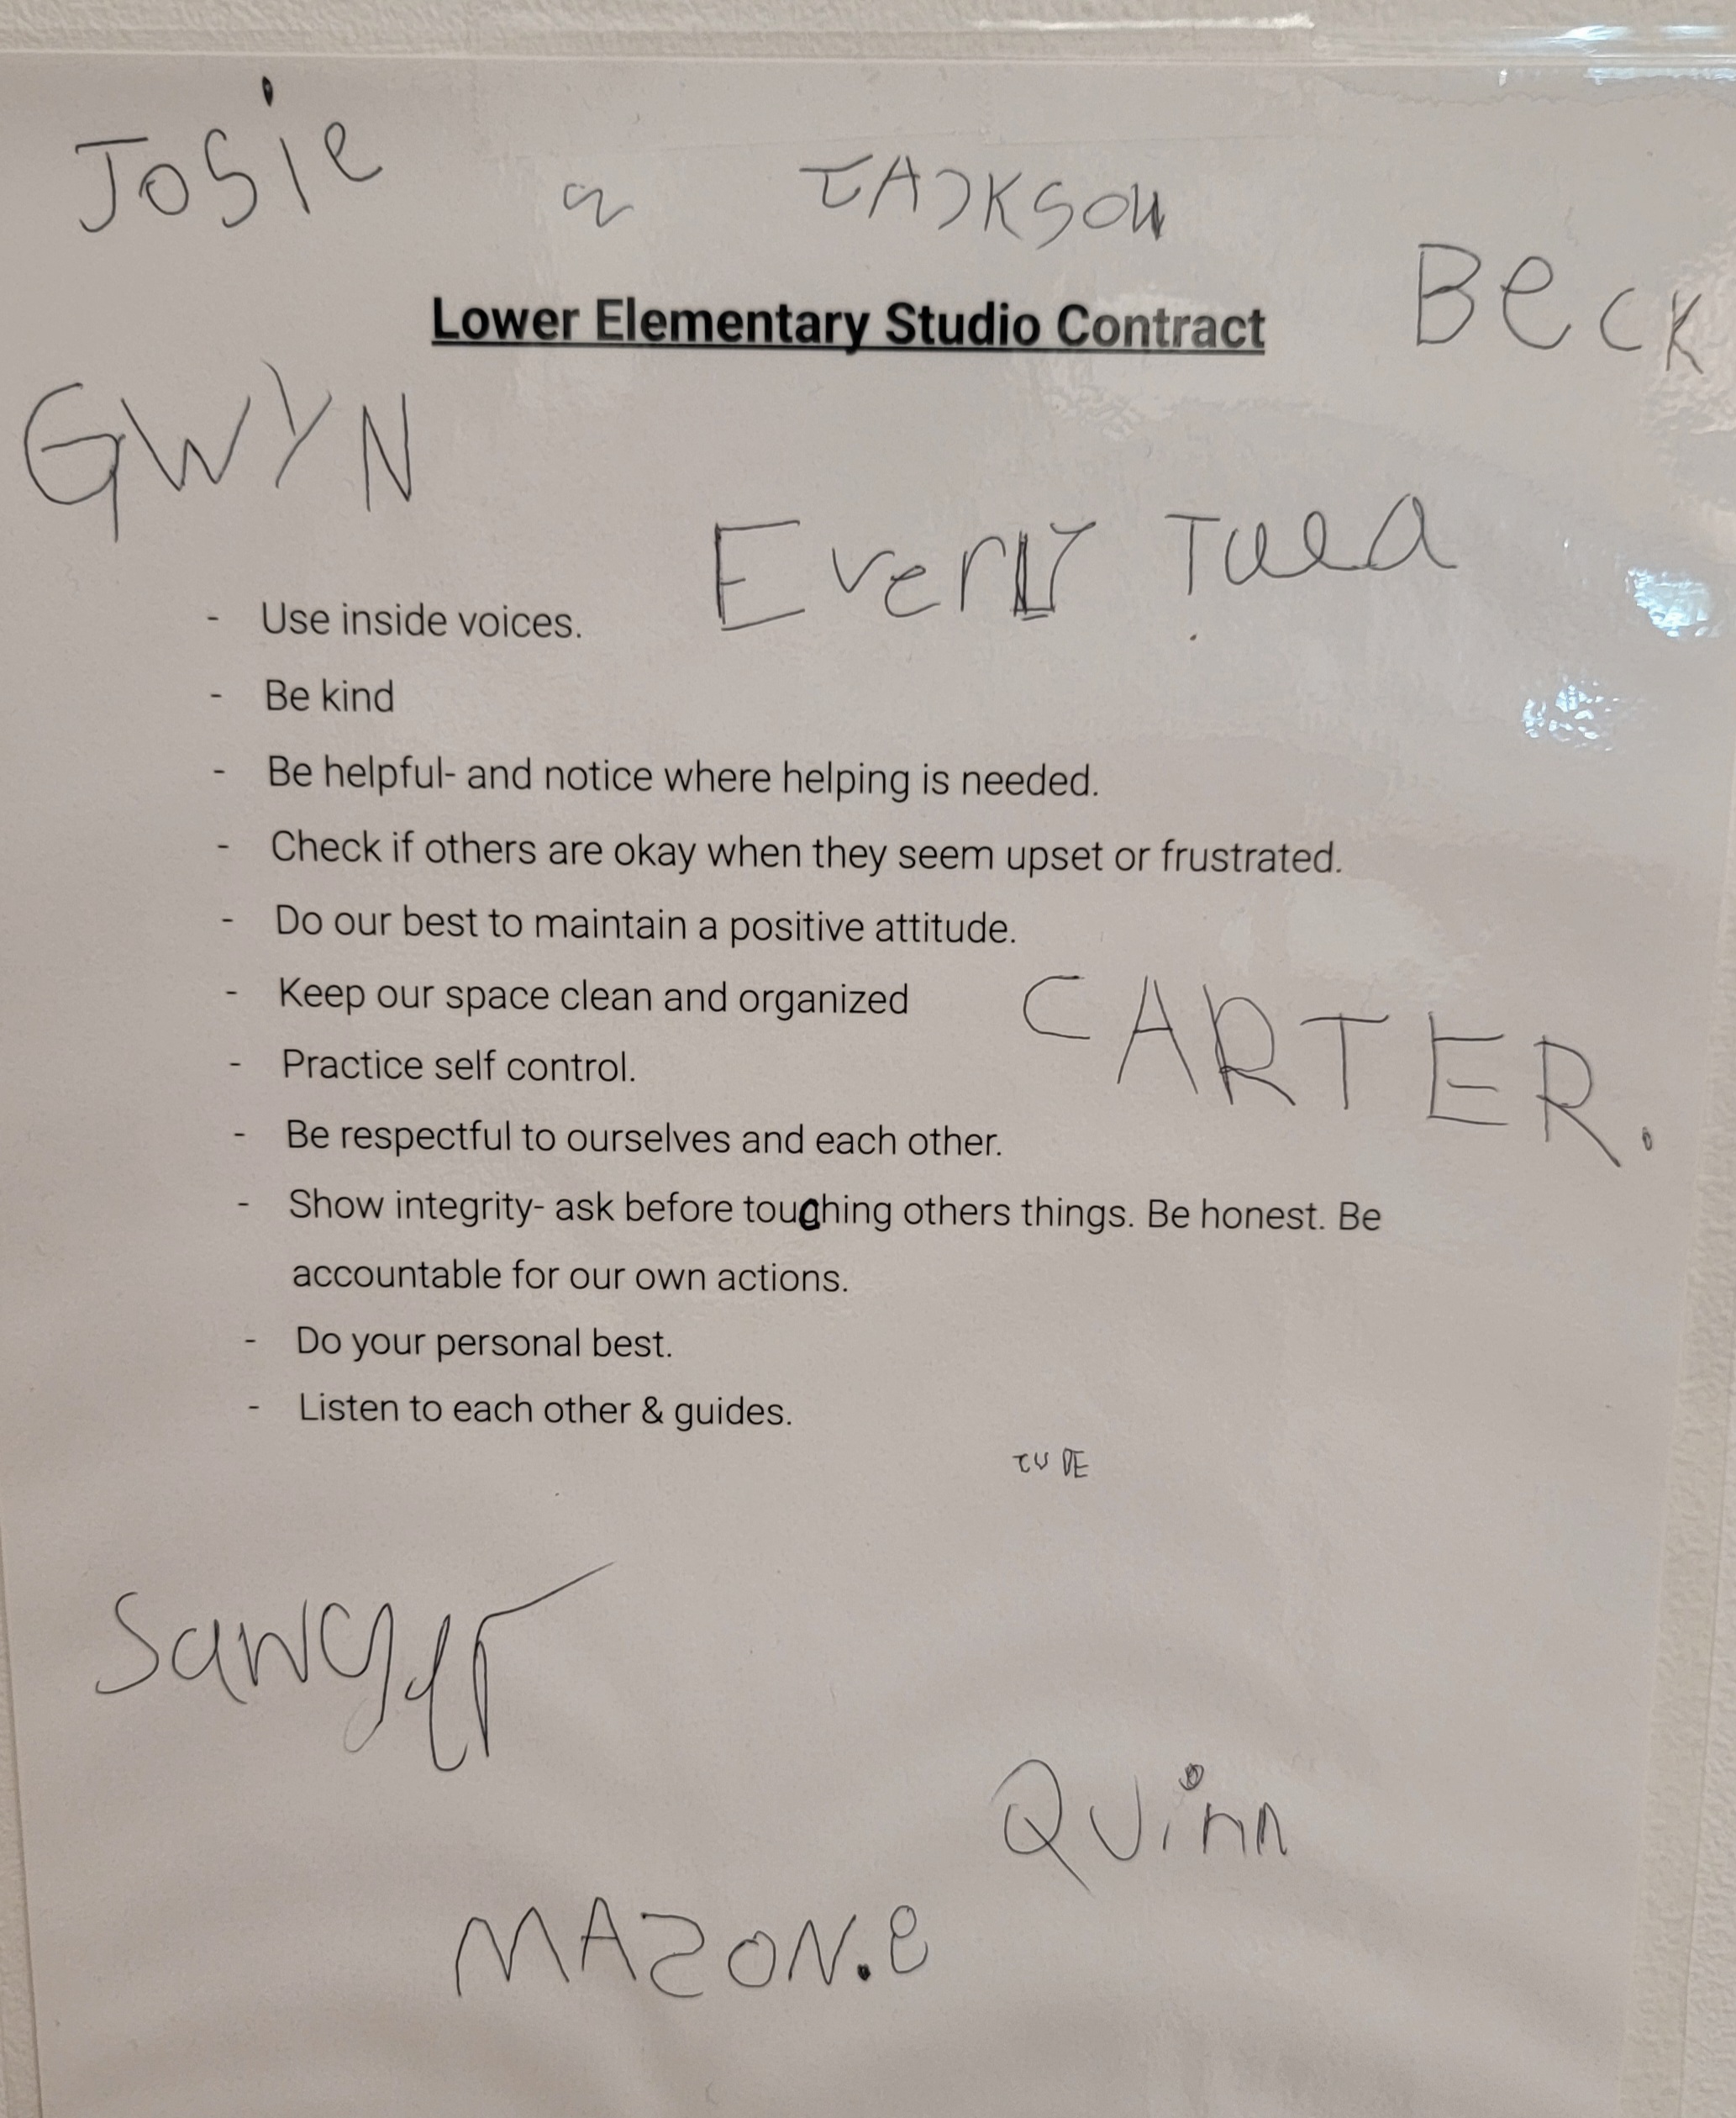 Josie
JACKSON
BecK
Lower Elementary Studio Contract
GWYN
- Use inside voices.
- Be kind
- Be helpful- and notice where helping is needed.
- Check if others are okay when they seem upset or frustrated.
- Do our best to maintain a positive attitude.
- Keep our space clean and organized
CARTER.
- Practice self control.
- Be respectful to ourselves and each other.
- Show integrity- ask before touching others things. Be honest. Be
accountable for our own actions.
- Do your personal best.
- Listen to each other & guides.
JUDE
Sawyer
Quinn
MASON.e